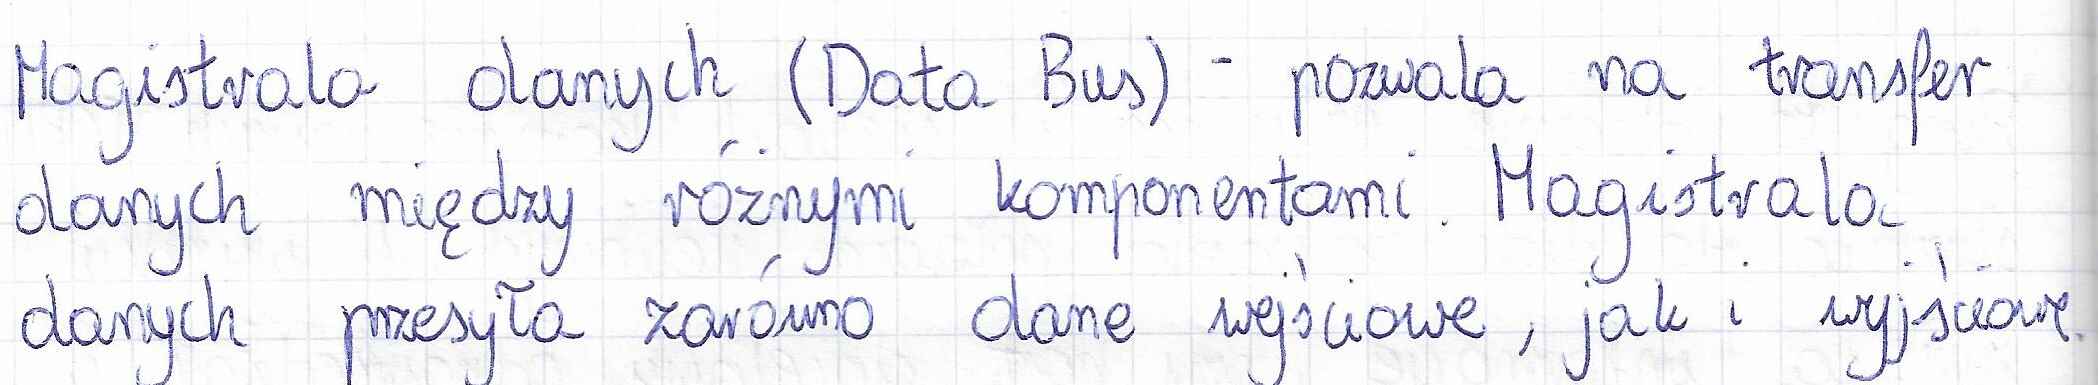 Magistrala danych (Data Bus) - pozwala na transfer
danych między różnymi komponentami. Magistrala
danych przesyła zarówno dane wejściowe, jak i wyjściowe.